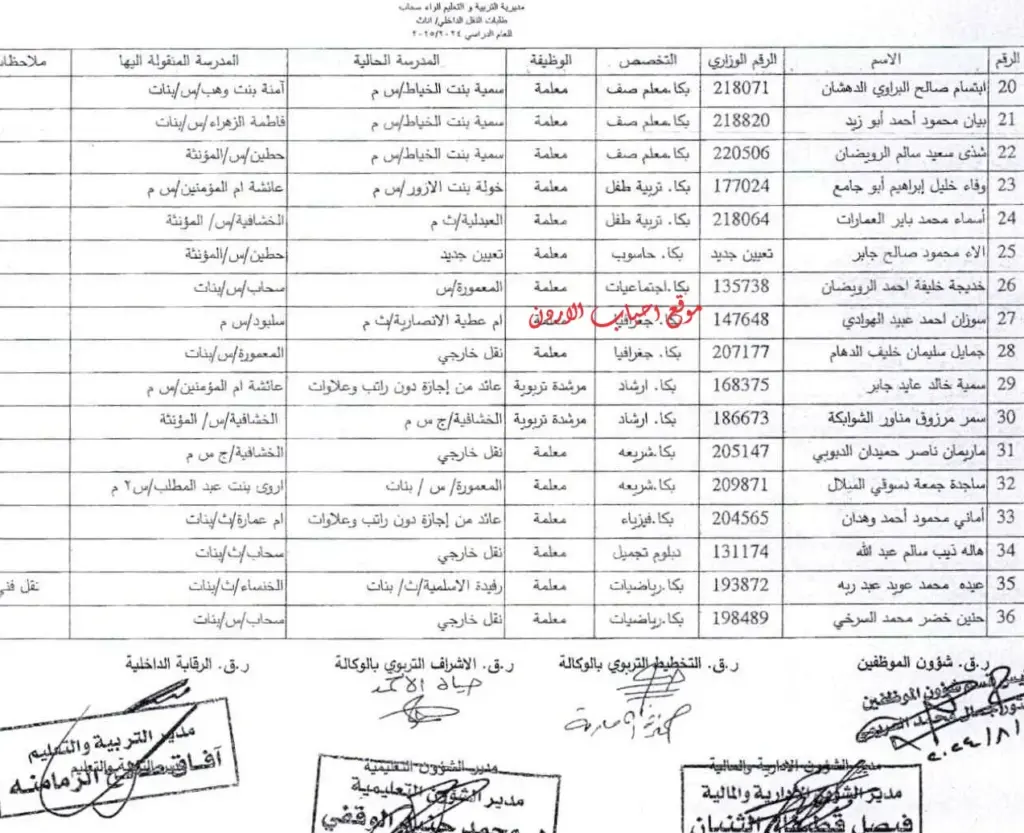 مديرية التربية و التعليم لواء سحاب
طلبات النقل الداخلي/ اناث
للعام الدراسي ٢٠٢٥/٢٠٢٤
الرقم الاسم الرقم الوزاري التخصص الوظيفة المدرسة الحالية المدرسة المنقولة اليها ملاحظات
20 ابتسام صالح البراوي الدهشان 218071 بكا.معلم صف معلمة سمية بنت الخياط/س م آمنة بنت وهب/س/بنات
21 بيان محمود أحمد أبو زيد 218820 بكا.معلم صف معلمة سمية بنت الخياط/س م فاطمة الزهراء/س/بنات
22 شذى سعيد سالم الرويضان 220506 بكا.معلم صف معلمة سمية بنت الخياط/س م حطين/س/المؤنثة
23 وفاء خليل إبراهيم أبو جامع 177024 بكا. تربية طفل معلمة خولة بنت الازور/س م عائشة ام المؤمنين/س م
24 أسماء محمد باير العمارات 218064 بكا. تربية طفل معلمة العبدلية/ث م الخشافية/س/ المؤنثة
25 الاء محمود صالح جابر تعيين جديد بكا. حاسوب معلمة تعيين جديد حطين/س/المؤنثة
26 خديجة خليفة احمد الرويضان 135738 بكا.اجتماعيات معلمة المعمورة/س سحاب/س/بنات
27 سوزان احمد عبيد الهوادي 147648 بكا. جغرافيا معلمة ام عطية الانصارية/ث م سلبود/س م
موقع احباب الاردن
28 جمايل سليمان خليف الدهام 207177 بكا. جغرافيا معلمة نقل خارجي المعمورة/س/بنات
29 سمية خالد عايد جابر 168375 بكا. ارشاد مرشدة تربوية عائد من إجازة دون راتب وعلاوات عائشة ام المؤمنين/س م
30 سمر مرزوق مناور الشوابكة 186673 بكا. ارشاد مرشدة تربوية الخشافية/ج س م الخشافية/س/ المؤنثة
31 ماريمان ناصر حميدان الدبوبي 205147 بكا.شريعه معلمة نقل خارجي الخشافية/ج س م
32 ساجدة جمعة دسوقي الميلال 209871 بكا.شريعه معلمة المعمورة/ س / بنات اروى بنت عبد المطلب/س٢ م
33 أماني محمود أحمد وهدان 204565 بكا.فيزياء معلمة عائد من إجازة دون راتب وعلاوات ام عمارة/ث/بنات
34 هاله ذيب سالم عبد الله 131174 دبلوم تجميل معلمة نقل خارجي سحاب/ث/بنات
35 عيده محمد عويد عبد ربه 193872 بكا.رياضيات معلمة رفيدة الاسلمية/ث/ بنات الخنساء/ث/بنات نقل فني
36 حنين خضر محمد السرخي 198489 بكا.رياضيات معلمة نقل خارجي سحاب/س/بنات
ر.ق. شؤون الموظفين ر.ق. التخطيط التربوي بالوكالة ر.ق. الاشراف التربوي بالوكالة ر.ق. الرقابة الداخلية
شؤون الموظفين
مدير الشؤون الإدارية والمالية مدير الشؤون التعليمية مدير التربية والتعليم
مدير الشؤون الإدارية والمالية مدير الشؤون التعليمية مدير التربية والتعليم
فيصل الثنيان محمد الوقفي آفاق الزمامنه